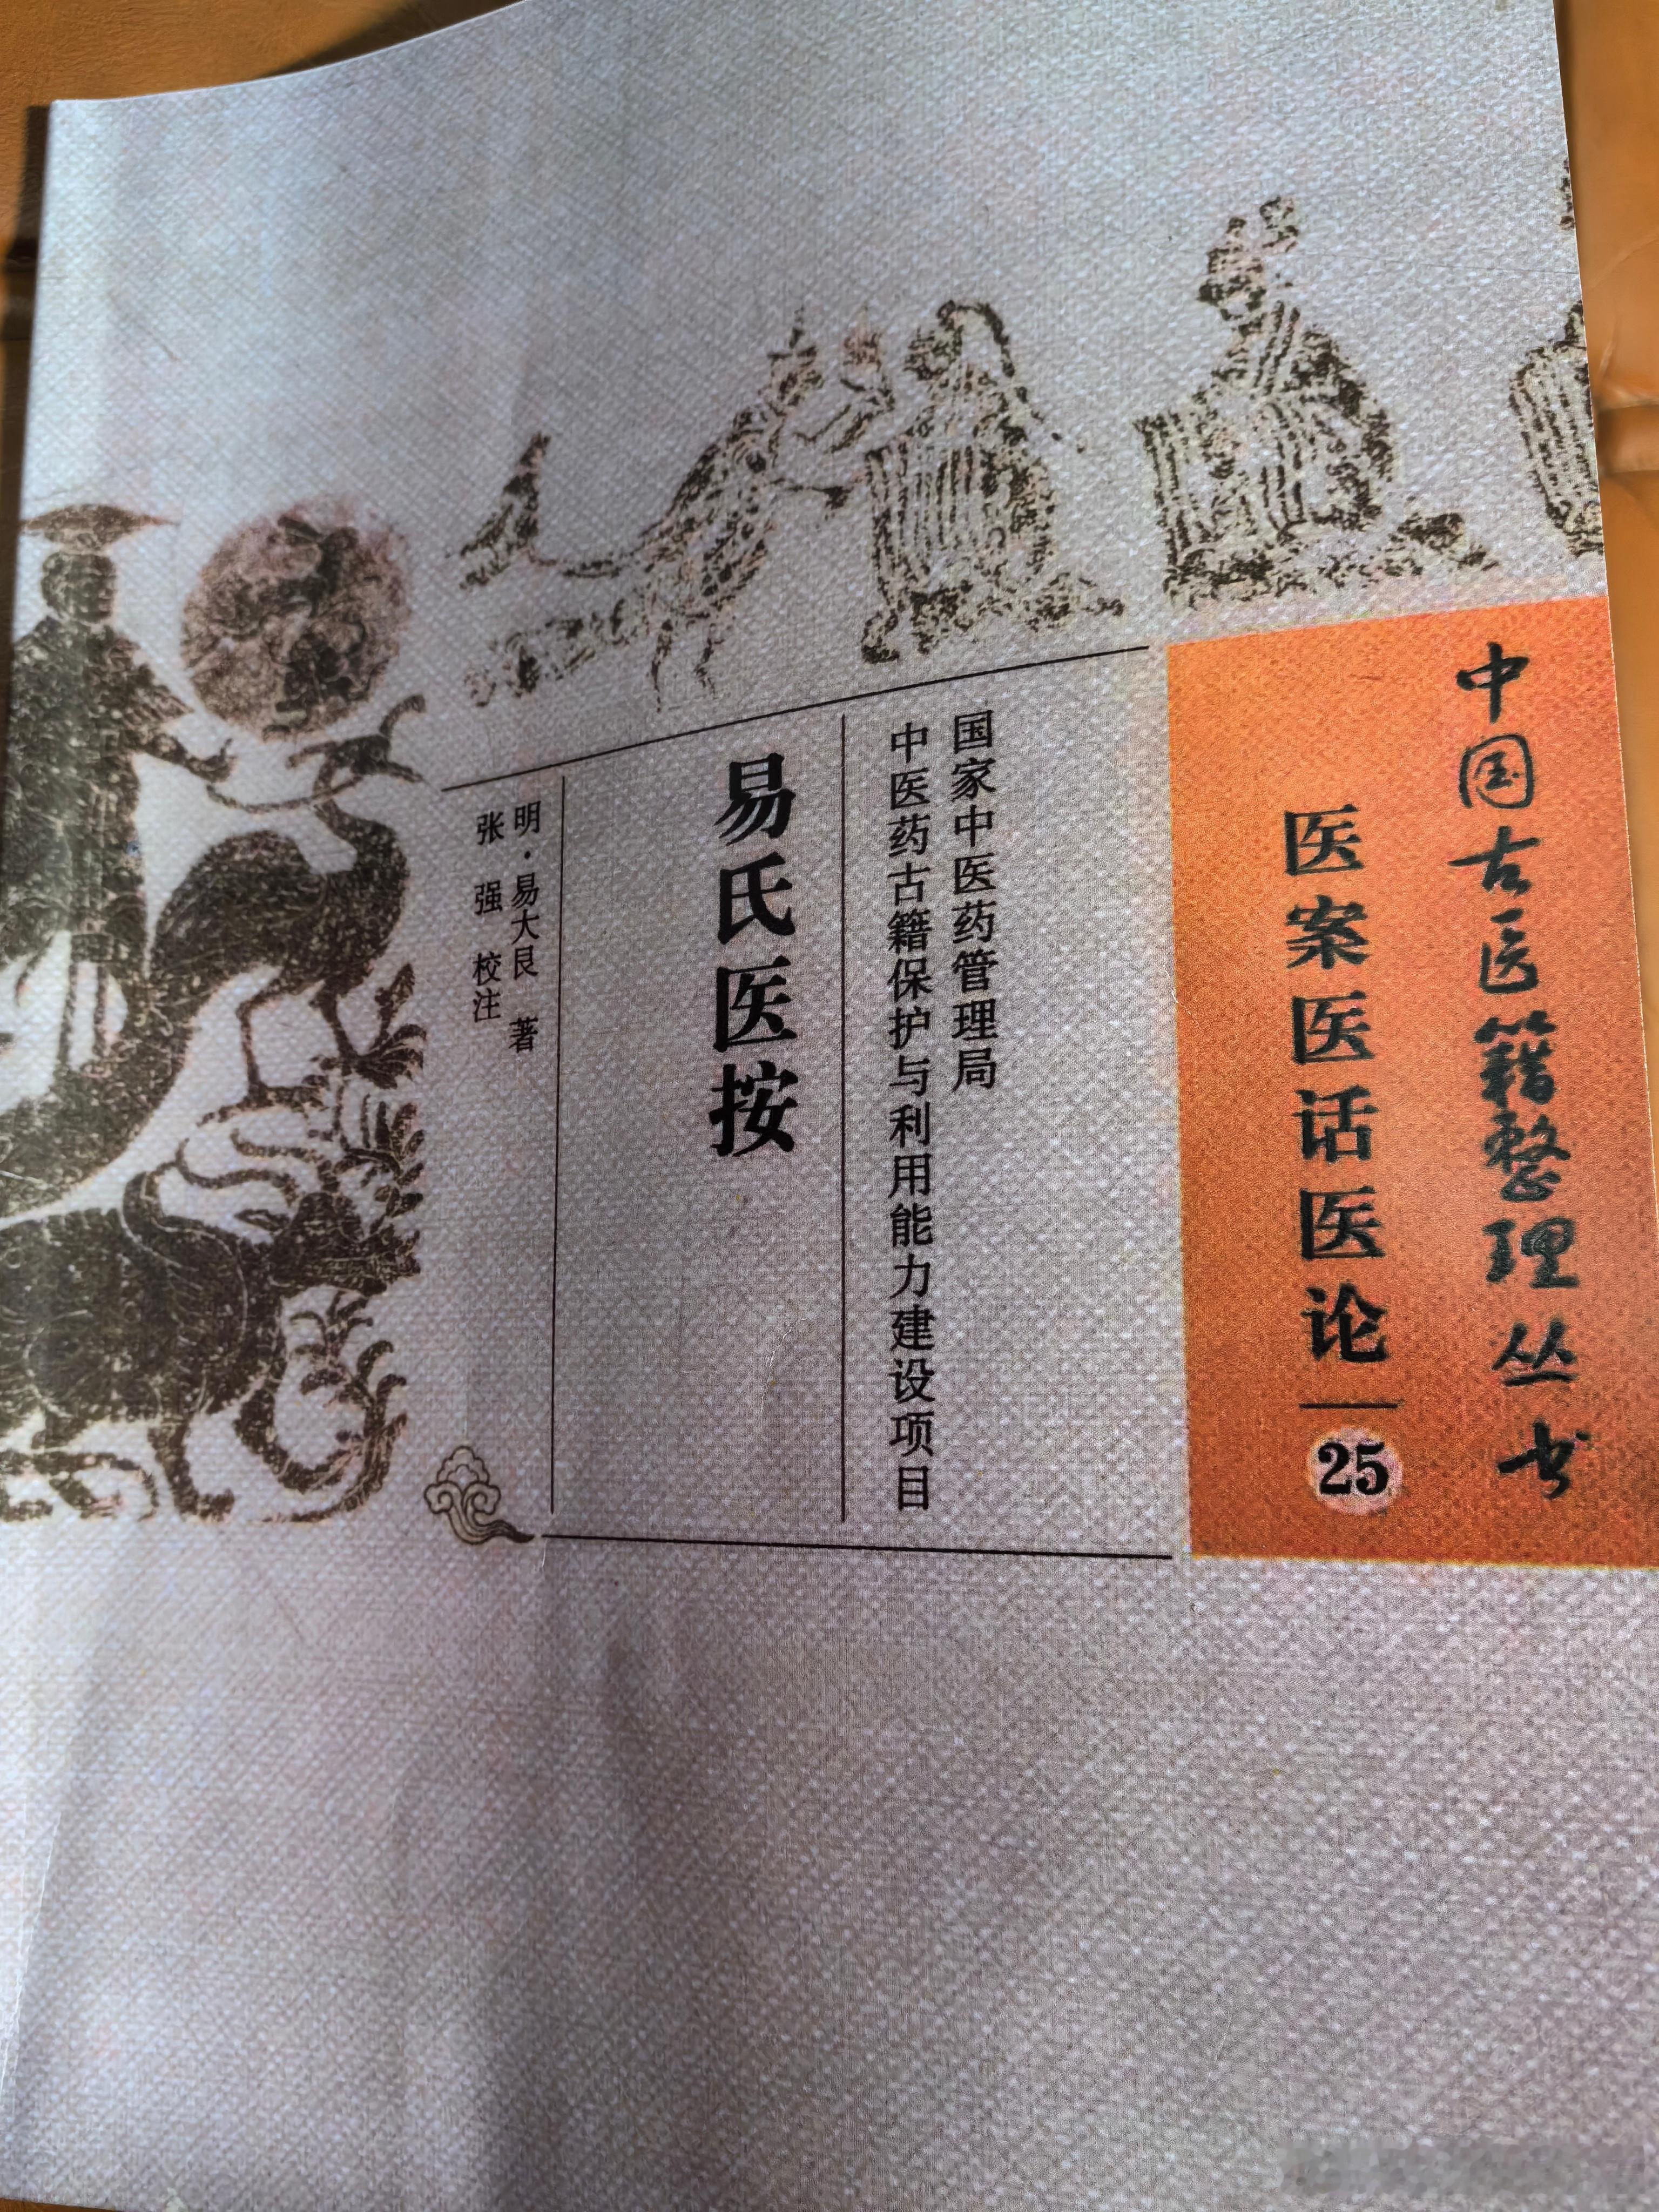 中国古医籍整理丛书
医案医话医论
25
国家中医药管理局
中医药古籍保护与利用能力建设项目
易氏医按
明·易大艮 著
张 强 校注